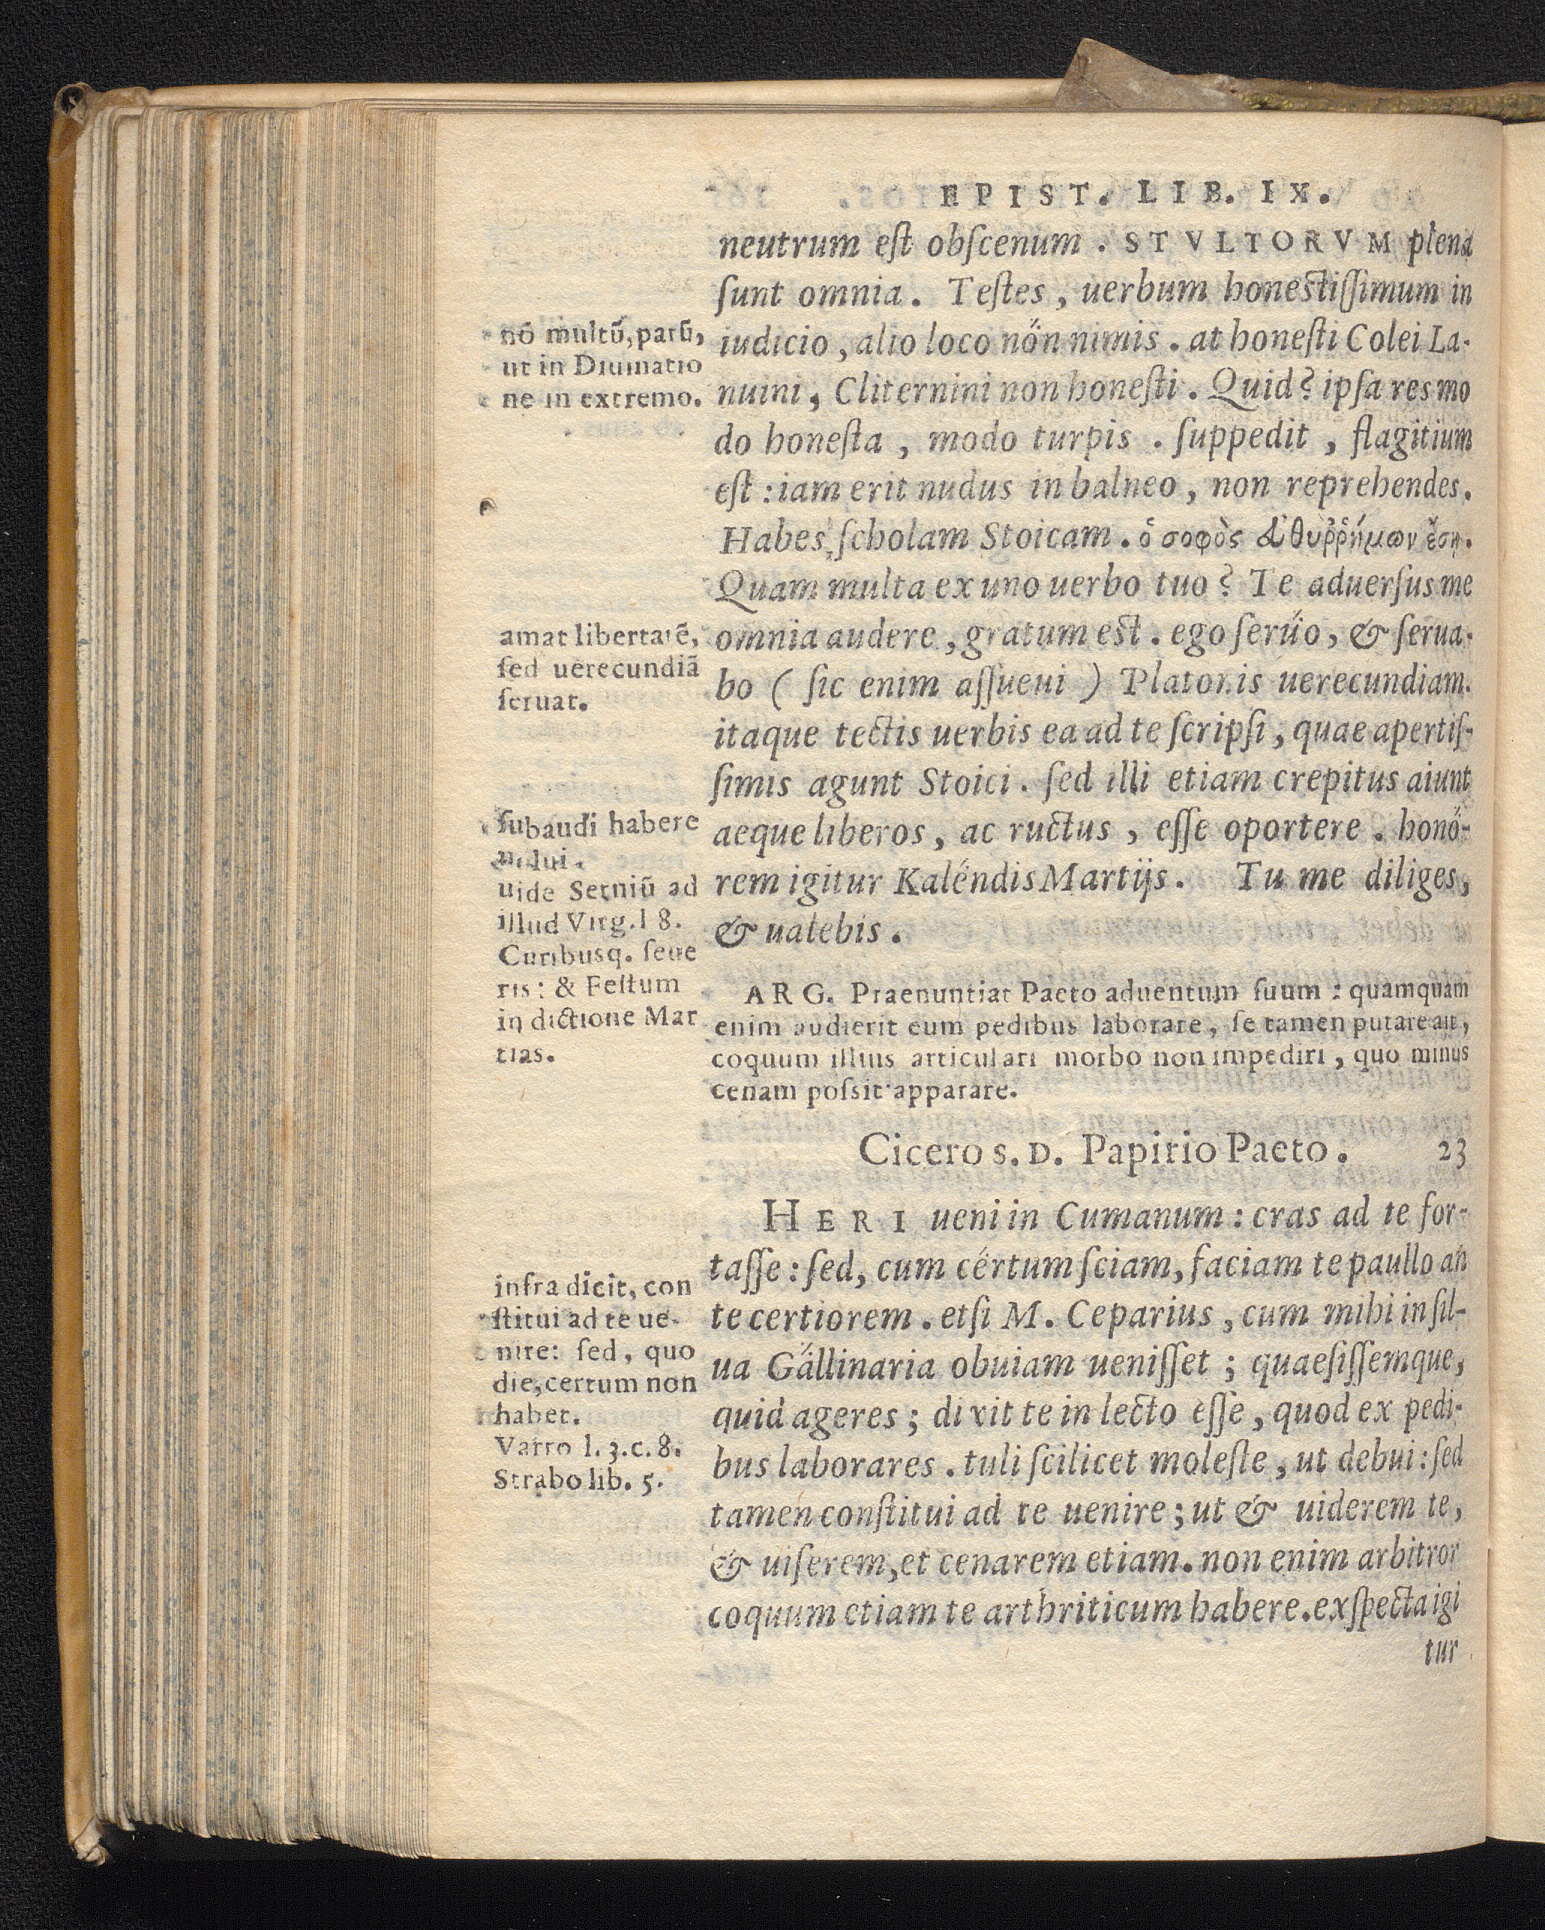 EPIST. LIB. IX.
neutrum est obscenum. STVLTORVM plena
sunt omnia. Testes, uerbum honestissimum in
iudicio, alio loco nőn nimis. at honesti Colei La-
nuini, Cliternini non honesti. Quid? ipsa res mo
do honesta, modo turpis. suppedit, flagitium
est: iam erit nudus in balneo, non reprehendes.
Habes scholam Stoicam. ὁ σοφὸς ἀθυῤῥήμων ἔση.
Quam multa ex uno uerbo tuo? Te aduersus me
omnia audere, gratum est. ego serűo, & serua-
bo (sic enim assueui) Platonis uerecundiam.
itaque tectis uerbis ea ad te scripsi, quae apertis-
simis agunt Stoici. sed illi etiam crepitus aiunt
aeque liberos, ac ructus, esse oportere. honő-
rem igitur Kaléndis Martijs. Tu me diliges,
& ualebis.
nō multū, parū,
ut in Diuinatio
ne in extremo.
amat libertatē,
sed uerecundiā
seruat.
subaudi habere
uolui.
uide Seruiū ad
illud Virg. l 8.
Curibusq. seue
ris: & Festum
in dictione Mar
tias.
ARG. Praenuntiat Paeto aduentum suum: quamquam
enim audierit eum pedibus laborare, se tamen putare ait,
coquum illius articulari morbo non impediri, quo minus
cenam possit apparare.
Cicero s. D. Papirio Paeto. 23
HERI ueni in Cumanum: cras ad te for-
tasse: sed, cum cértum sciam, faciam te paullo an
te certiorem. etsi M. Ceparius, cum mihi in sil-
ua Gallinaria obuiam uenisset; quaesissemque,
quid ageres; dixit te in lecto esse, quod ex pedi-
bus laborares. tuli scilicet moleste, ut debui: sed
tamen constitui ad te uenire; ut & uiderem te,
& uiserem, et cenarem etiam. non enim arbitror
coquum etiam te arthriticum habere. exspecta igi
tur
infra dicit, con
stitui ad te ue-
nire: sed, quo
die, certum non
habet.
Varro l. 3. c. 8.
Strabo lib. 5.